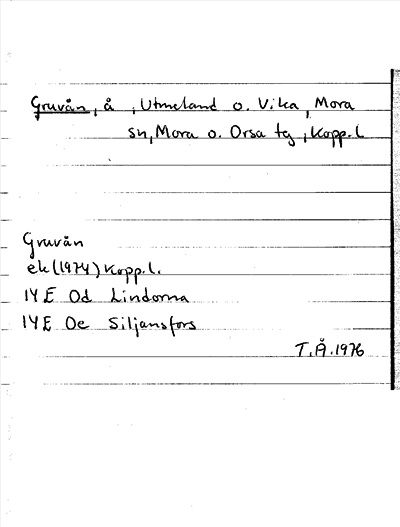 Gruvån, å , Utmeland o. Vika, Mora
sn, Mora o. Orsa tg, Kopp. l
Gruvån
ek (1974) Kopp. l.
14 E 0d Lindorna
14 E 0e Siljansfors
T. Å. 1976